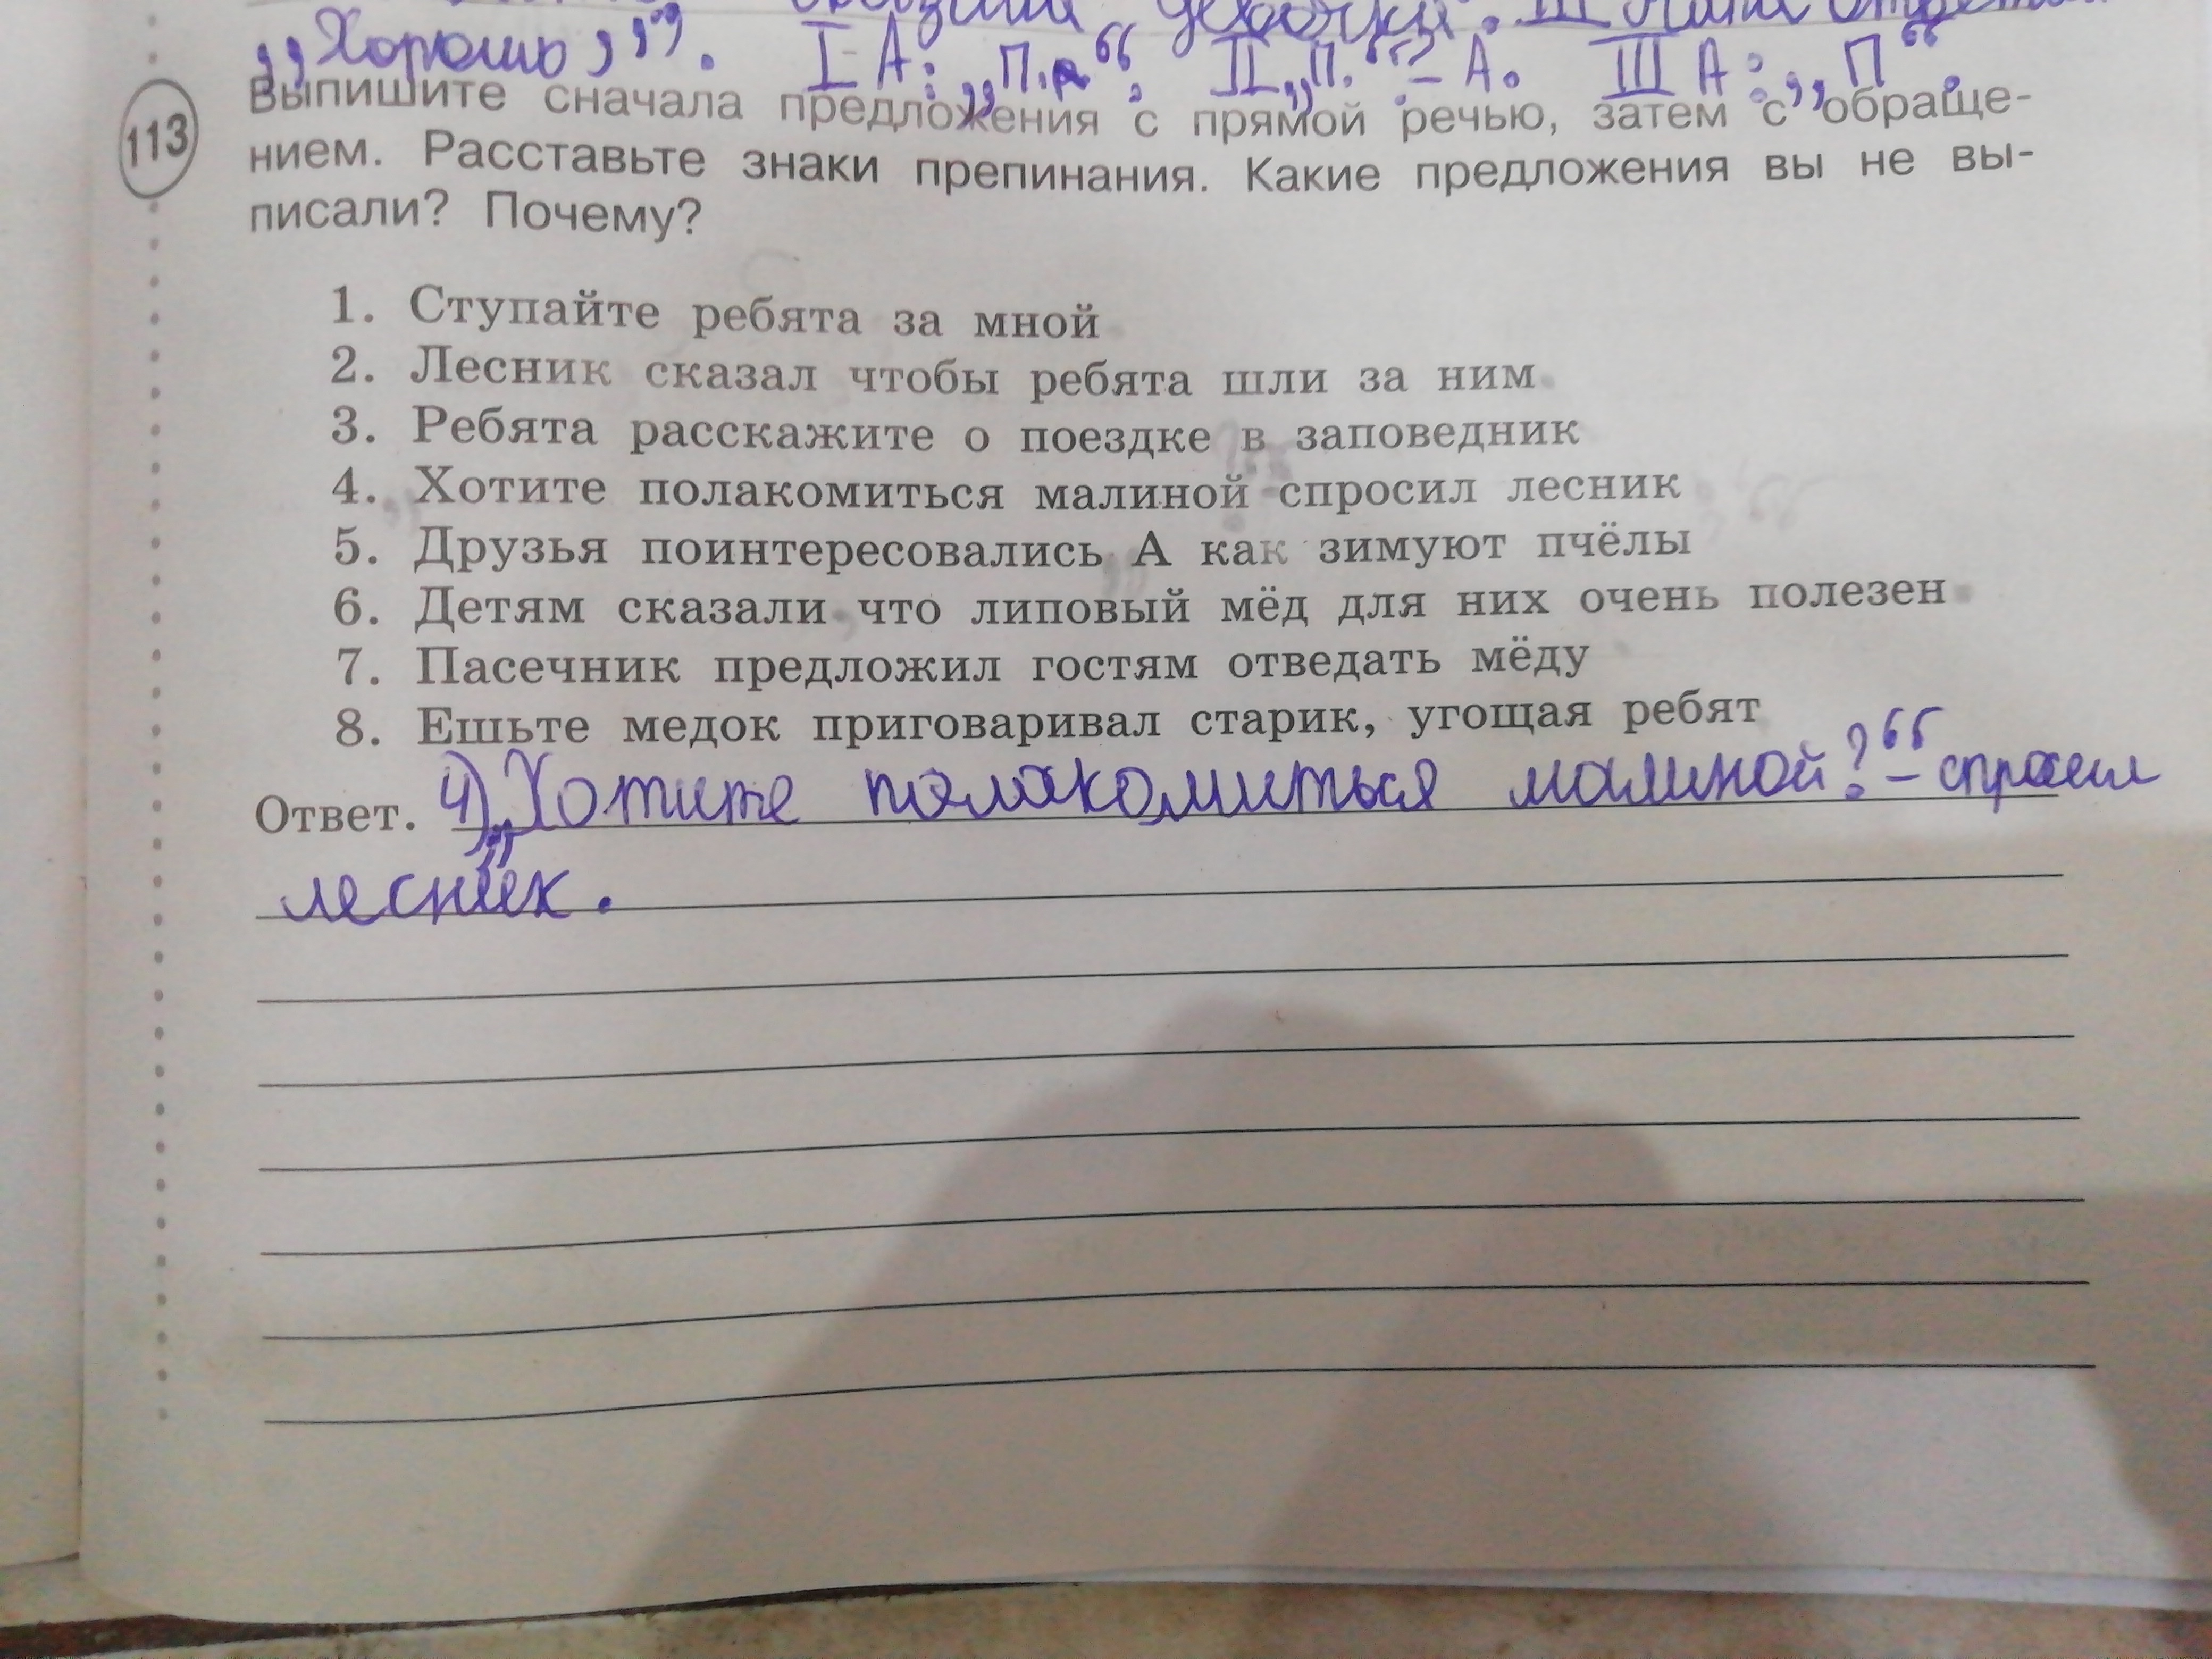 девочки. III Папа
„Хорошо,”. I А: „П.“. II „П.“? – А. III А: „П“.
113
Выпишите сначала предложения с прямой речью, затем с обраще-
нием. Расставьте знаки препинания. Какие предложения вы не вы-
писали? Почему?
1. Ступайте ребята за мной
2. Лесник сказал чтобы ребята шли за ним
3. Ребята расскажите о поездке в заповедник
4. Хотите полакомиться малиной спросил лесник
5. Друзья поинтересовались А как зимуют пчёлы
6. Детям сказали что липовый мёд для них очень полезен
7. Пасечник предложил гостям отведать мёду
8. Ешьте медок приговаривал старик, угощая ребят
Ответ. 4) „Хотите полакомиться малиной?“ – спросил
лесник.